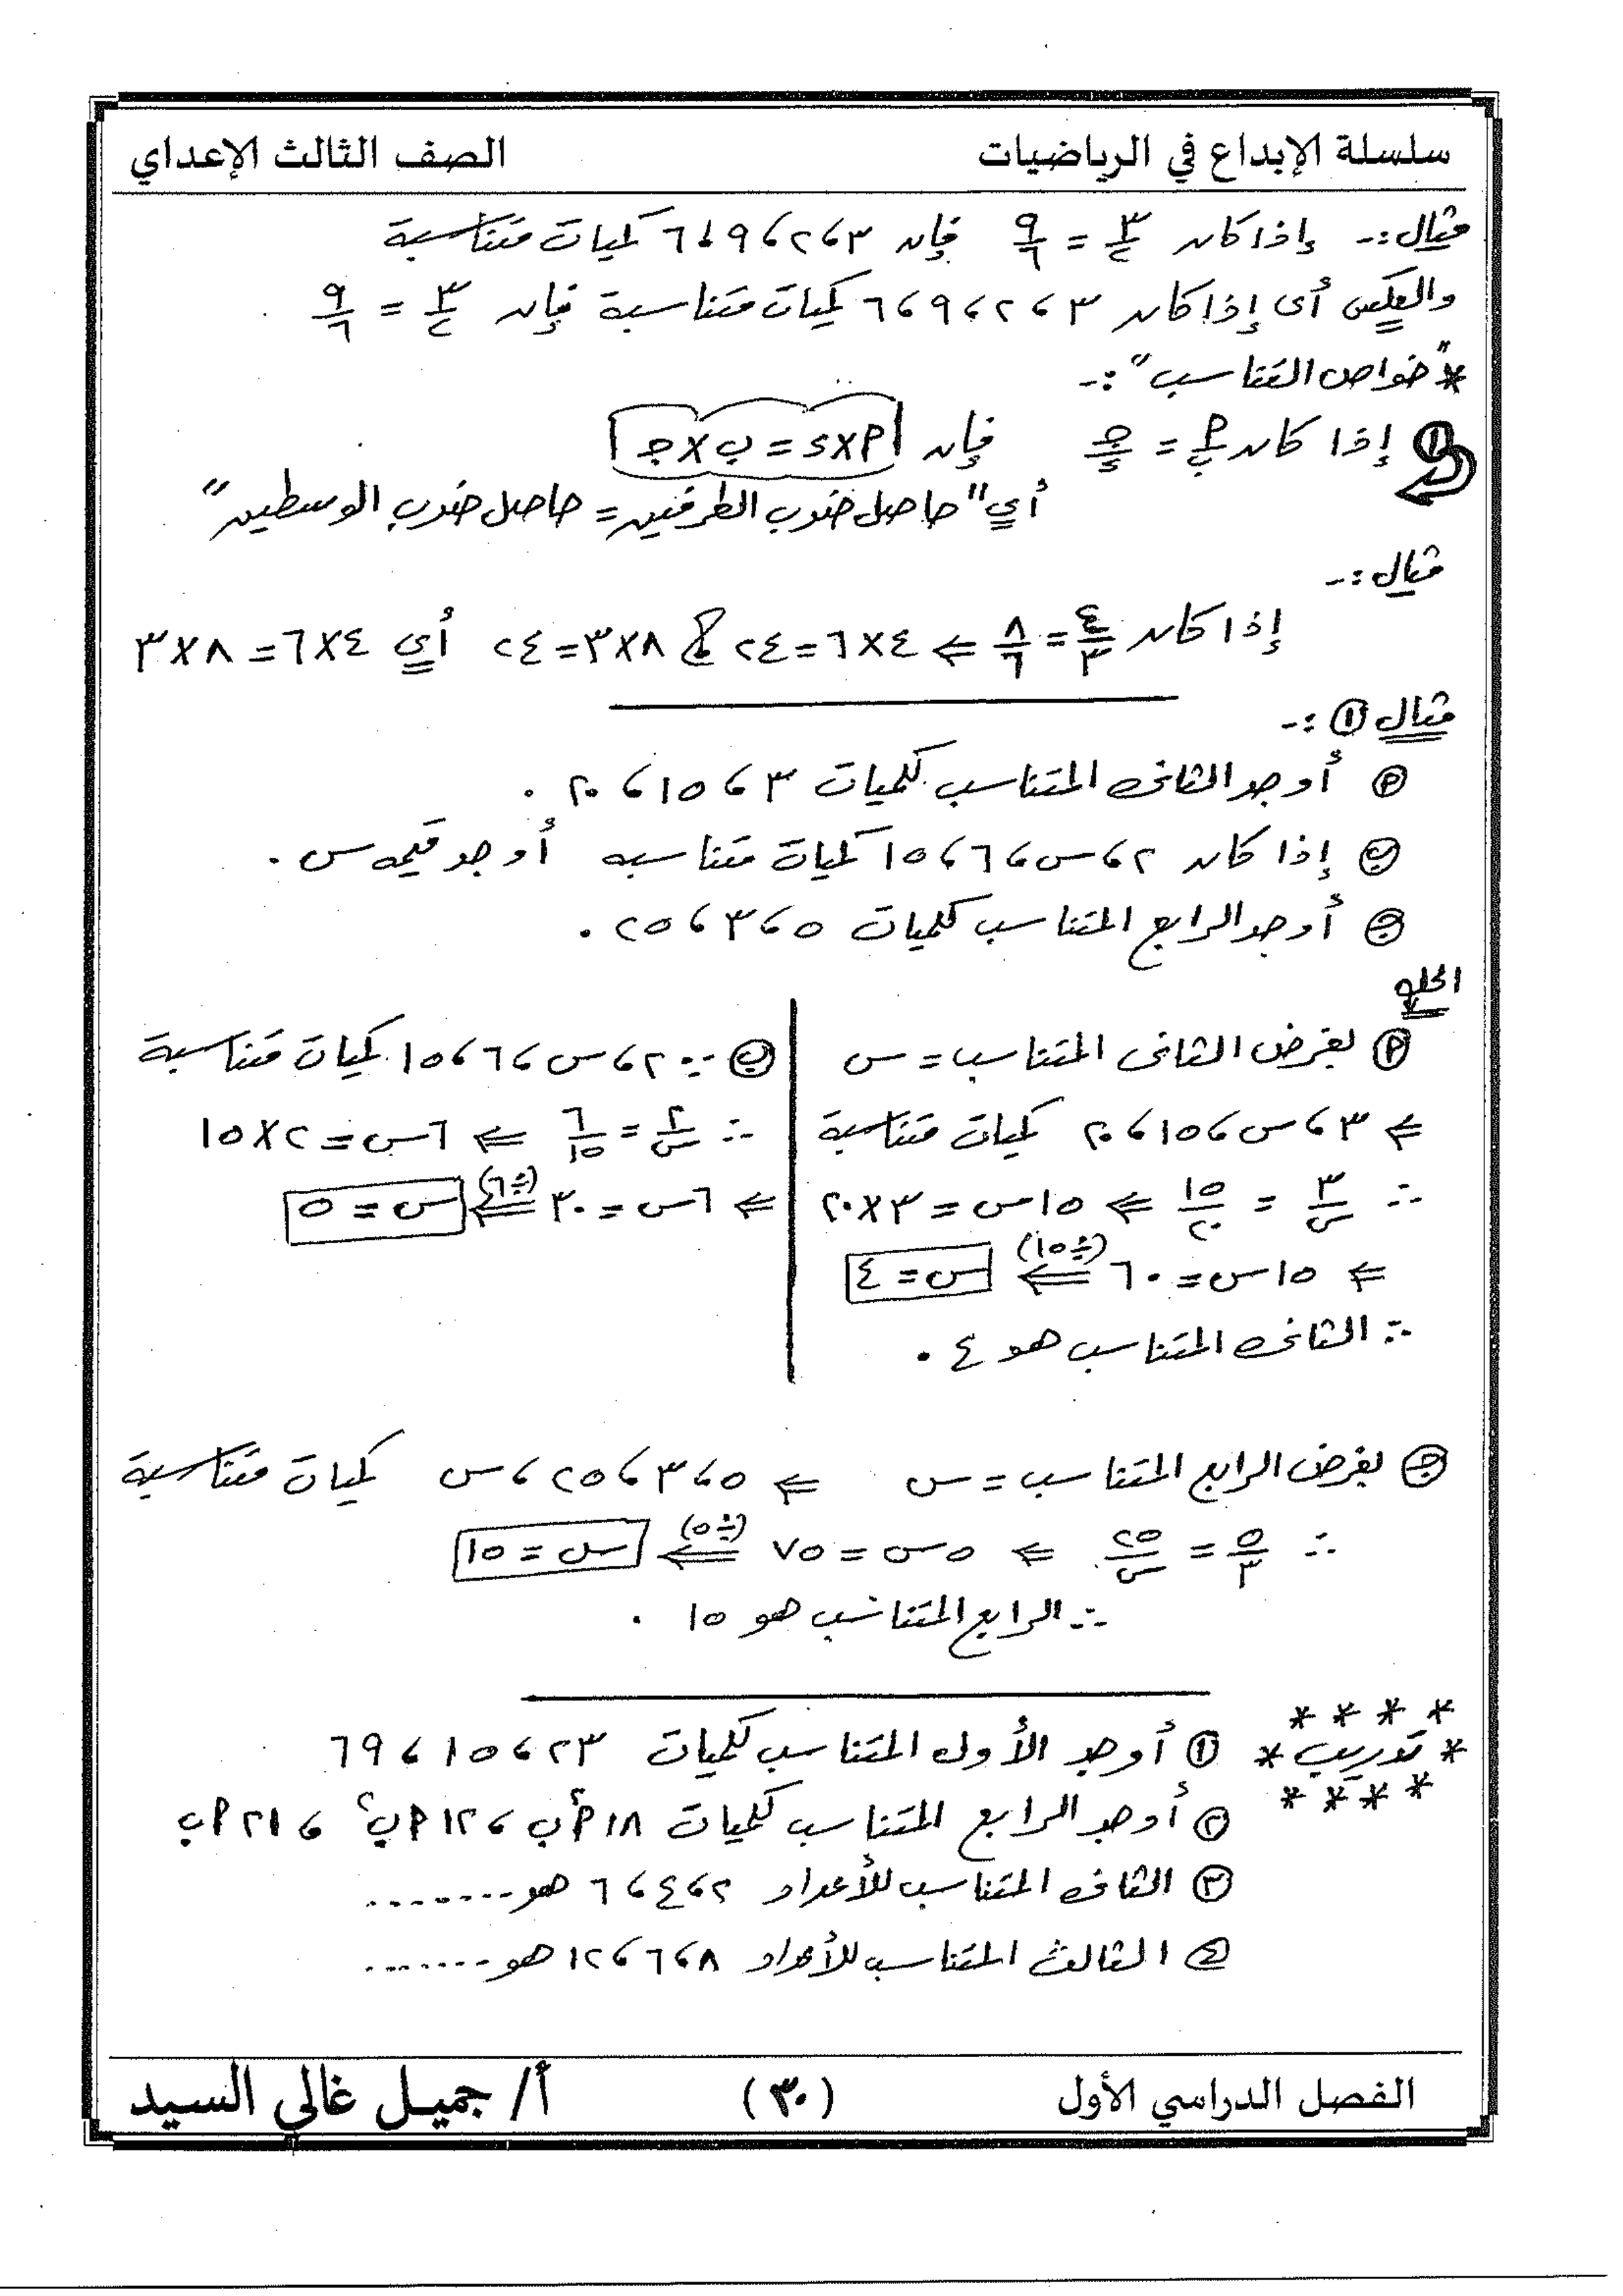 سلسلة الإبداع في الرياضيات الصف الثالث الإعداي
مثال:- إذا كان ٣/٢ = ٩/٦ فإن ٣، ٢، ٩، ٦ كميات متناسبة
والعكس أى إذا كان ٣، ٢، ٩، ٦ كميات متناسبة فإن ٣/٢ = ٩/٦ .
* "خواص التناسب" :-
① إذا كان أ/ب = جـ/د فإن أ×د = ب×جـ
أي "حاصل ضرب الطرفين = حاصل ضرب الوسطين"
مثال:-
إذا كان ٤/٣ = ٨/٦ ⇐ ٤×٦=٢٤ ، ٨×٣=٢٤ أي ٤×٦=٨×٣
مثال ①:-
(أ) أوجد الثانى المتناسب لكميات ٣، ١٥، ٢٠ .
(ب) إذا كان ٢، س، ٦، ١٥ كميات متناسبه أوجد قيمه س .
(جـ) أوجد الرابع المتناسب لكميات ٥، ٣، ٢٥ .
الحل
(أ) بفرض الثانى المتناسب = س
⇐ ٣، س، ١٥، ٢٠ كميات متناسبة
∴ ٣/س = ١٥/٢٠ ⇐ ١٥س = ٣×٢٠
⇐ ١٥س = ٦٠ ⇐ (÷١٥) س = ٤
∴ الثانى المتناسب هو ٤ .
(ب) ∵ ٢، س، ٦، ١٥ كميات متناسبة
∴ ٢/س = ٦/١٥ ⇐ ٦س = ٢×١٥
⇐ ٦س = ٣٠ ⇐ (÷٦) س = ٥
(جـ) بفرض الرابع المتناسب = س ⇐ ٥، ٣، ٢٥، س كميات متناسبة
∴ ٥/٣ = ٢٥/س ⇐ ٥س = ٧٥ ⇐ (÷٥) س = ١٥
∴ الرابع المتناسب هو ١٥ .
* تدريب * ① أوجد الأول المتناسب لكميات ٢٣، ١٥، ٦٩
② أوجد الرابع المتناسب لكميات ١٨أ²ب، ١٢أب²، ٢١أب
③ الثانى المتناسب للأعداد ٢، ٤، ٦ هو ........
④ الثالث المتناسب للأعداد ٨، ٦، ١٢ هو ........
الفصل الدراسي الأول (٣٠) أ/ جميل غالي السيد